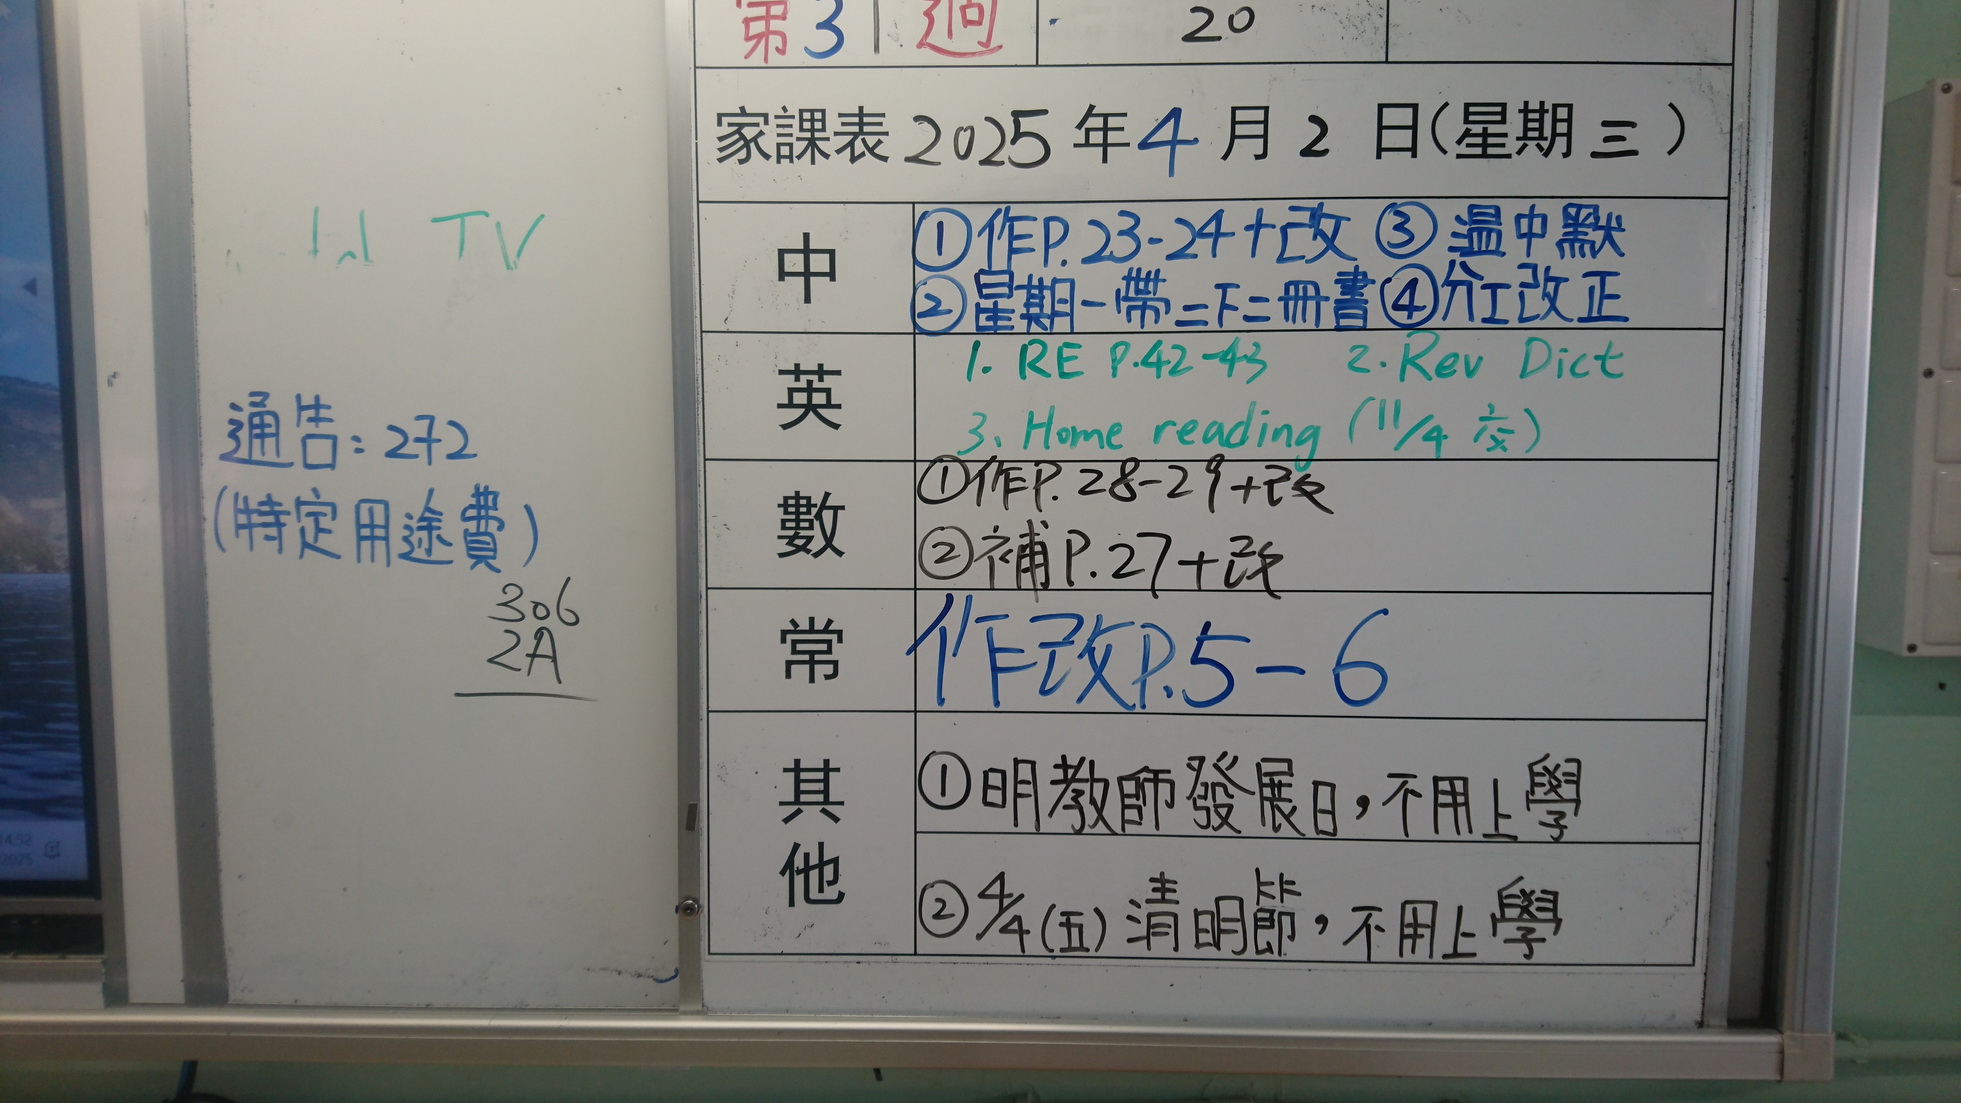 第31週
20
家課表 2025 年 4 月 2 日(星期 三 )
中
①作P.23-24+改 ③温中默
②星期一帶二下二冊書④分工改正
英
1. RE P.42-43 2. Rev Dict
3. Home reading (11/4 交)
數
①作P.28-29+改
②補P.27+改
常
作改P.5-6
其他
①明教師發展日,不用上學
②4/4(五)清明節,不用上學
TV
通告:272
(特定用途費)
306
2A